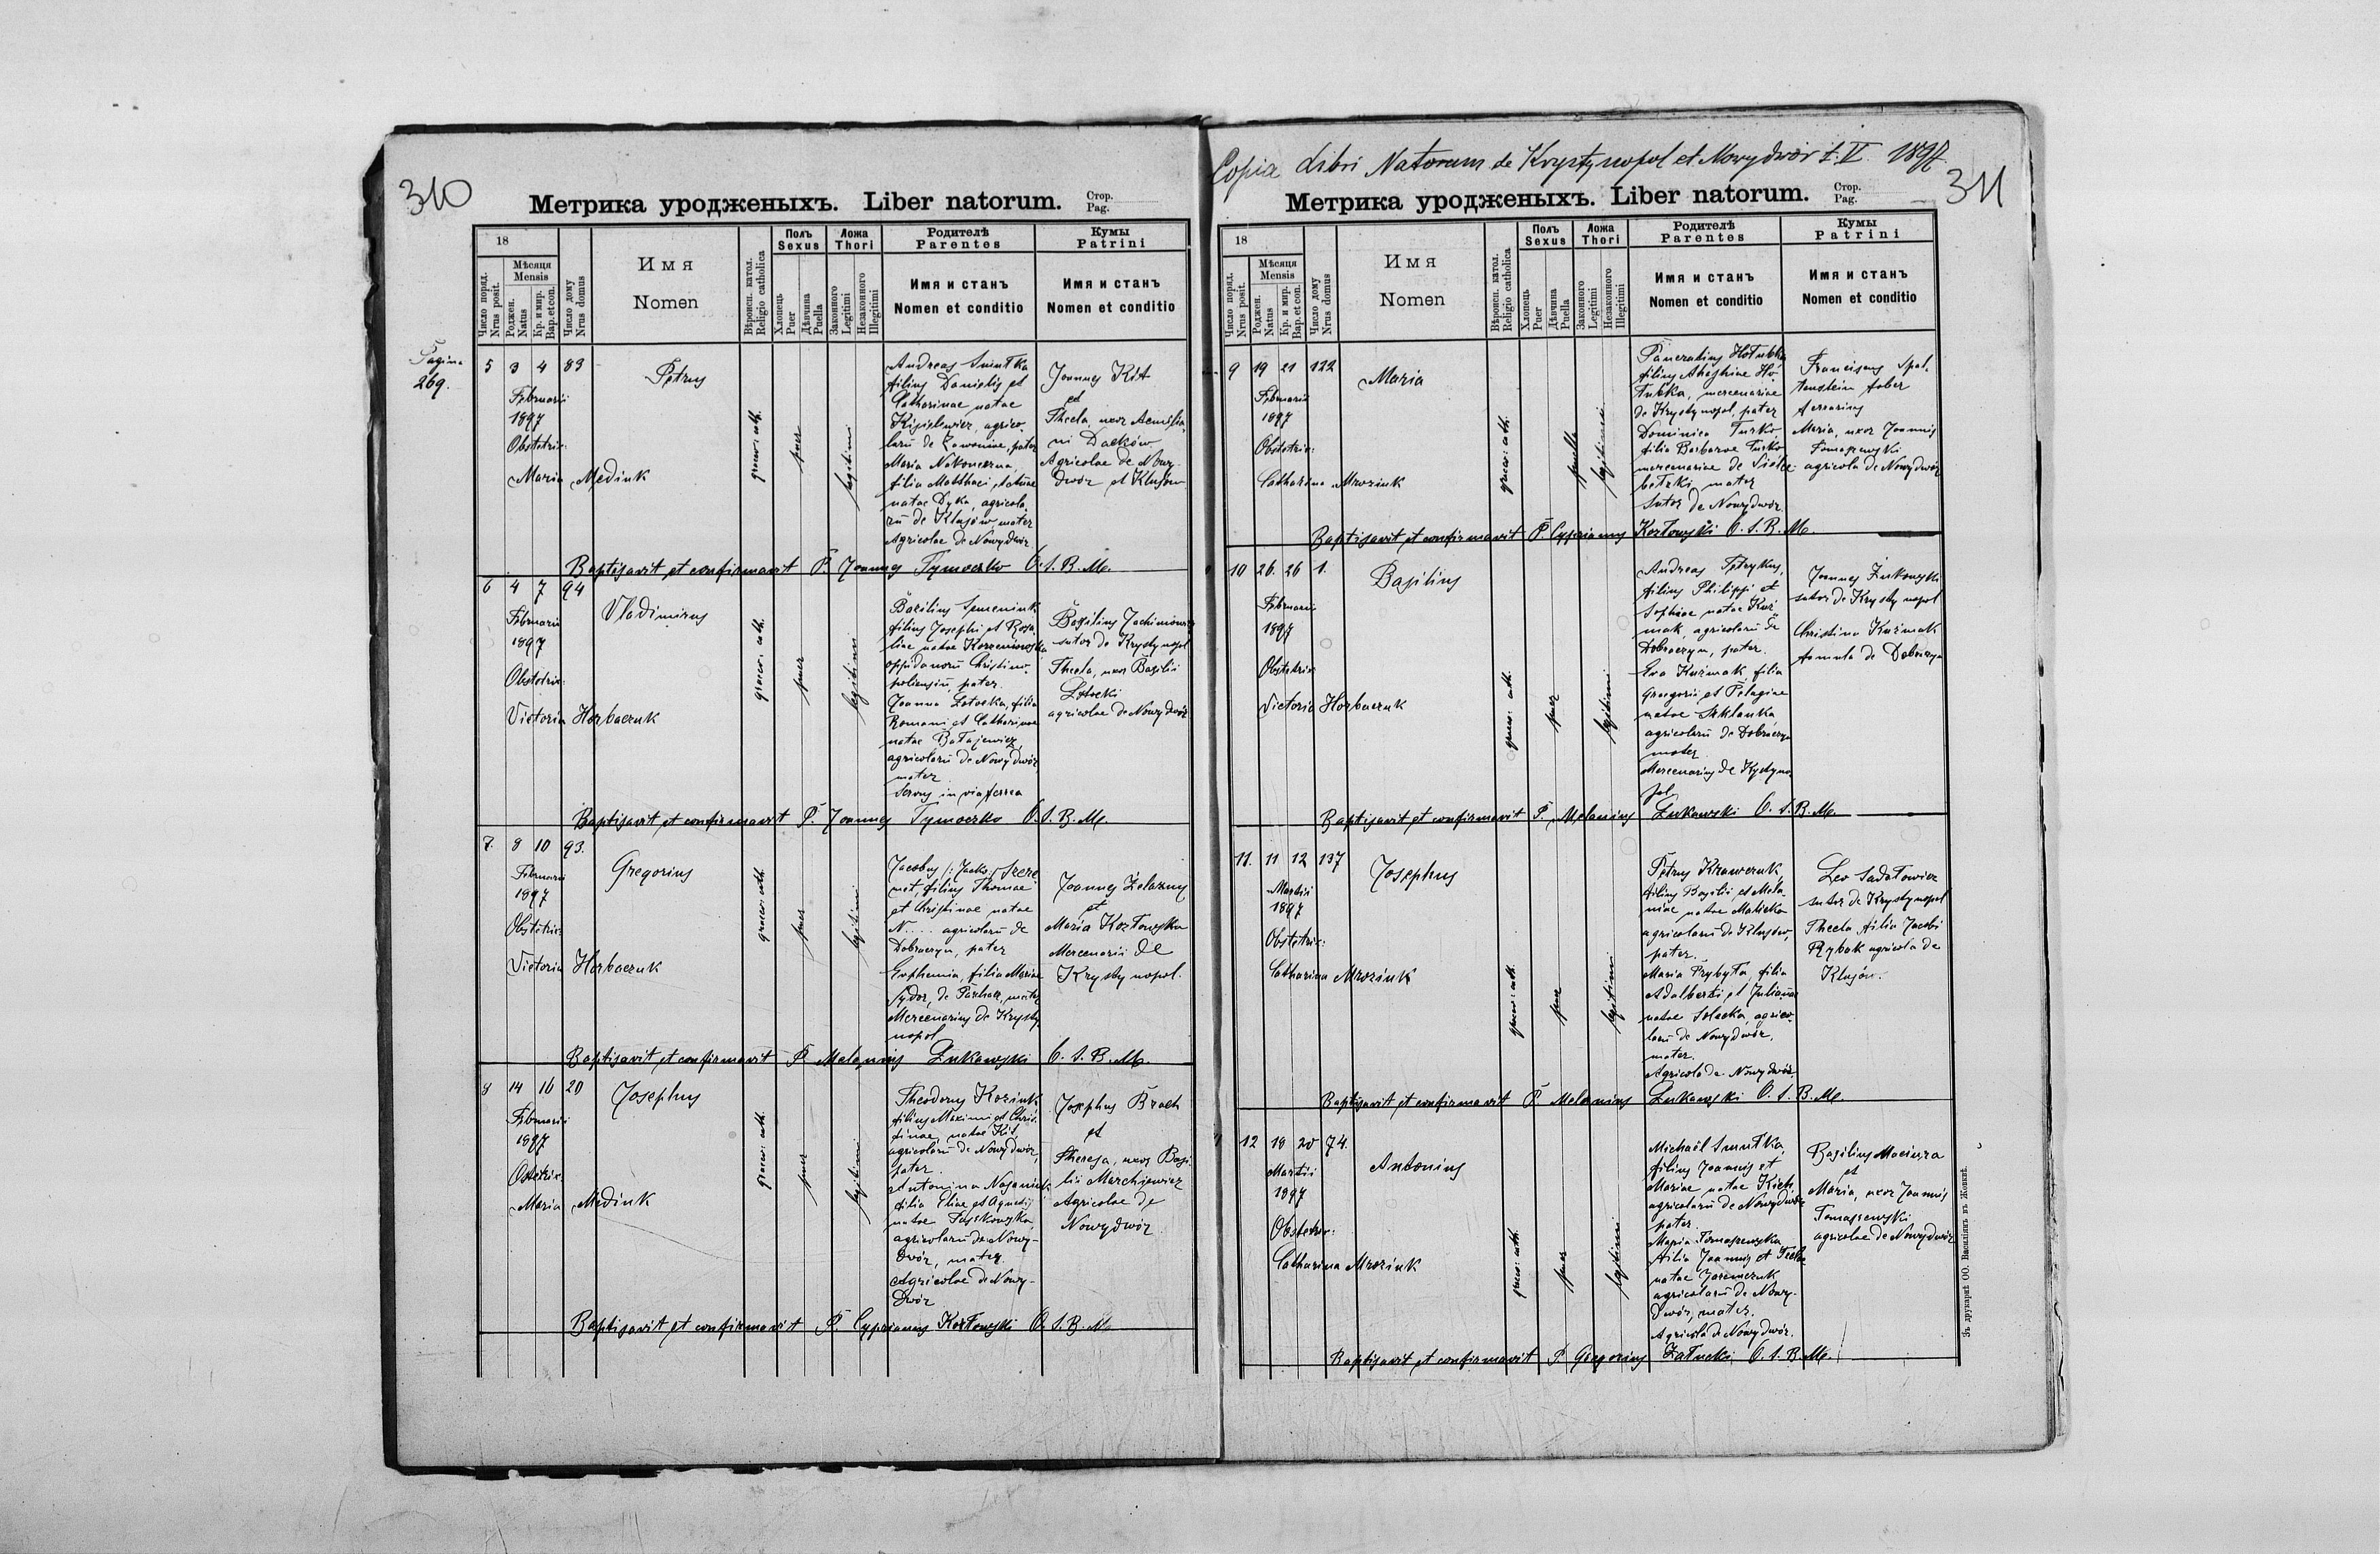 310
Метрика уродженыхъ. Liber natorum.
Стор.
Pag.
18
Число поряд.
Nrus posit.
Мѣсяця
Mensis
Роджен.
Natus
Кр. и мир.
Bap. et con.
Число дому
Nrus domus
Имя
Nomen
Вѣроисп. катол.
Religio catholica
Полъ
Sexus
Хлопець
Puer
Дѣвчина
Puella
Ложа
Thori
Законного
Legitimi
Незаконного
Illegitimi
Родителѣ
Parentes
Имя и станъ
Nomen et conditio
Кумы
Patrini
Имя и станъ
Nomen et conditio
Pagina
269.
5 3 4 83
Februarii
1897
Obstetrix:
Maria Mediuk
Petrus
graeco: cath.
puer
legitimi
Andreas Smutka
filius Danielis et
Catharinae natae
agrico-
larum de pater
Maria Nakoneczna,
filia Matthaei et Annae
natae Dyka, agricola-
rum de Klusów, mater
Agricolae de Nowydwór
Joannes Kit
et
Thecla, uxor Aemilia-
ni Daćków
Agricolae de Nowy-
dwór et Klusów
Baptisavit et confirmavit P. Joannes Tymoczko O. S. B. M.
6 4 7 94
Februarii
1897
Obstetrix:
Victoria Horbaczuk
Vladimirus
graeco: cath.
puer
legitimi
Basilius Semeniuk
filius Josephi et Rosa-
liae natae Korzeniowska
oppidanorum Christino-
poliensium, pater
Joanna Lotocka, filia
Romani et Catharinae
natae Batajewicz,
agricolarum de Nowydwór,
mater
Servus in via ferrea
Basilius Jachimowicz
sutor de Krystynopol
Thecla, uxor Basilii
Lotocki
agricolae de Nowydwór
Baptisavit et confirmavit P. Joannes Tymoczko O. S. B. M.
7. 8 10 93.
Februarii
1897
Obstetrix:
Victoria Horbaczuk
Gregorius
graeco: cath.
puer
legitimi
Jacobus /: Jacko :/ Szere-
met, filius Thomae
et Christinae natae
N..... agricolarum de
Dobraczyn, pater
Euphemia, filia Mariae
Sydor, de Parchacz, mater
Mercenarius de Krysty-
nopol
Joannes Żelazny
et
Maria Kozłowska
Mercenarii de
Krystynopol.
Baptisavit et confirmavit P. Melanius Łukawski O. S. B. M.
8 14 16 20
Februarii
1897
Obstetrix:
Maria Mediuk
Josephus
graeco: cath.
puer
legitimi
Theodorus Koziuk
filius Maximi et Chris-
tinae, natae Kit,
agricolarum de Nowydwór,
pater
Antonina
filia Eliae et Agnetis
natae
agricolarum de Nowy-
dwór, mater
Agricolae de Nowy-
dwór
Josephus Brach
et
Theresa, uxor Basi-
lii Marchiewicz
Agricolae de
Nowydwór
Baptisavit et confirmavit P. Cyprianus Kozłowski O. S. B. M.
Copia Libri Natorum de Krystynopol et Nowydwór t. V. 1897
311
Метрика уродженыхъ. Liber natorum.
Стор.
Pag.
18
Число поряд.
Nrus posit.
Мѣсяця
Mensis
Роджен.
Natus
Кр. и мир.
Bap. et con.
Число дому
Nrus domus
Имя
Nomen
Вѣроисп. катол.
Religio catholica
Полъ
Sexus
Хлопець
Puer
Дѣвчина
Puella
Ложа
Thori
Законного
Legitimi
Незаконного
Illegitimi
Родителѣ
Parentes
Имя и станъ
Nomen et conditio
Кумы
Patrini
Имя и станъ
Nomen et conditio
9 19 21 122
Februarii
1897
Obstetrix:
Catharina Mroziuk
Maria
graeco: cath.
puella
legitimi
Pancratius Hołubka
filius Ho-
łubka, mercenariae
de Krystynopol, pater
Dominica Turko
filia Barbarae Turko
mercenariae de Siółko
mater
Sutor de Nowydwór
Franciscus Spal-
tenstein faber
ferrarius
Maria, uxor Joannis
Tomaszewski
agricola de Nowydwór
Baptisavit et confirmavit P. Cyprianus Kozłowski O. S. B. M.
10 26. 26 1.
Februarii
1897
Obstetrix:
Victoria Horbaczuk
Basilius
graeco: cath.
puer
legitimi
Andreas Petrykus,
filius Philippi et
Sophiae natae Kuź-
mak, agricolarum de
Dobraczyn, pater.
Eva Kuźmak, filia
Gregorii et Pelagiae
natae Szklanka,
agricolarum de Dobraczyn
mater
Mercenarius de Krystyno-
pol
Joannes Żukowski
sutor de Krystynopol
Christina Kuźmak
famula de Dobraczyn
Baptisavit et confirmavit P. Melanius Łukawski O. S. B. M.
11. 11 12 137
Martii
1897
Obstetrix:
Catharina Mroziuk
Josephus
graeco: cath.
puer
legitimi
Petrus Krawczuk,
filius Basilii et Mela-
niae natae Malicka
agricolarum de Klusów,
pater.
Maria Przybyła, filia
Adalberti et Juliannae
natae Solecka, agrico-
larum de Nowydwór,
mater.
Agricola de Nowydwór.
Leo Sadłowicz
sutor de Krystynopol
Thecla filia Jacobi
Rybak agricola de
Klusów.
Baptisavit et confirmavit P. Melanius Łukawski O. S. B. M.
12 18 20 74.
Martii
1897
Obstetrix:
Catharina Mroziuk
Antonius
graeco: cath.
puer
legitimi
Michaël Smutka,
filius Joannis et
Mariae natae Kich,
agricolarum de Nowydwór
pater.
Maria Tomaszewska
filia Joannis et Theclae
natae Jaremczuk
agricolarum de Nowy-
dwór, mater.
Agricola de Nowydwór.
Basilius Maciura
et
Maria, uxor Joannis
Tomaszewski
agricolae de Nowydwór
Baptisavit et confirmavit P. Gregorius Załucki O. S. B. M.
Зъ друкарнѣ ОО. Василіянъ въ Жовквѣ.